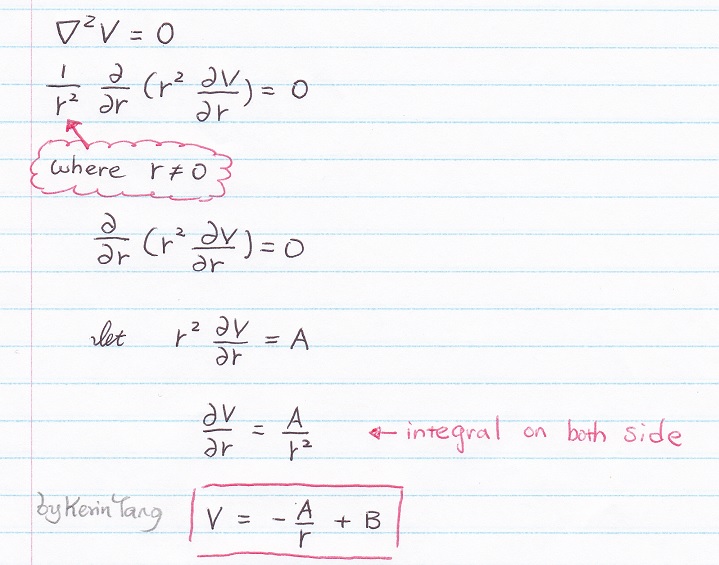 ∇²V = 0
1/r² ∂/∂r (r² ∂V/∂r) = 0
where r ≠ 0
∂/∂r (r² ∂V/∂r) = 0
let r² ∂V/∂r = A
∂V/∂r = A/r² ← integral on both side
by Kevin Yang
V = - A/r + B